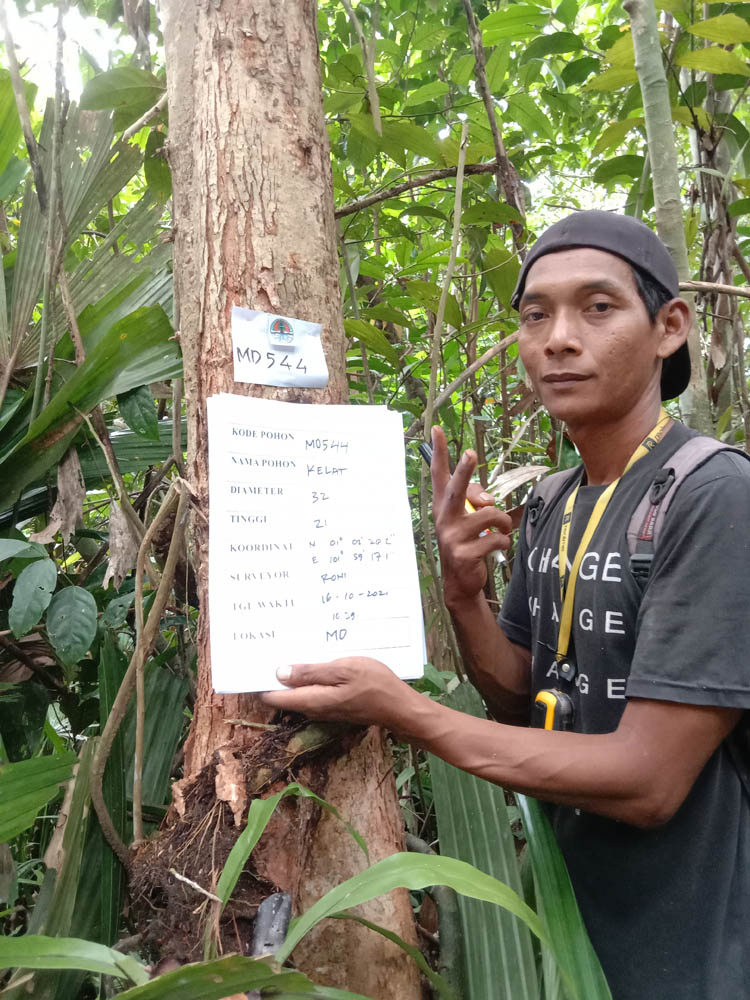 MD544
KODE POHON MD544
NAMA POHON KELAT
DIAMETER 32
TINGGI 21
KOORDINAT N 01° 02' 20.2"
E 101° 59' 17.1
SURVEYOR RONI
TGL WAKTU 16-10-2021
LOKASI MD
CHANGE
CHANGE
CHANGE